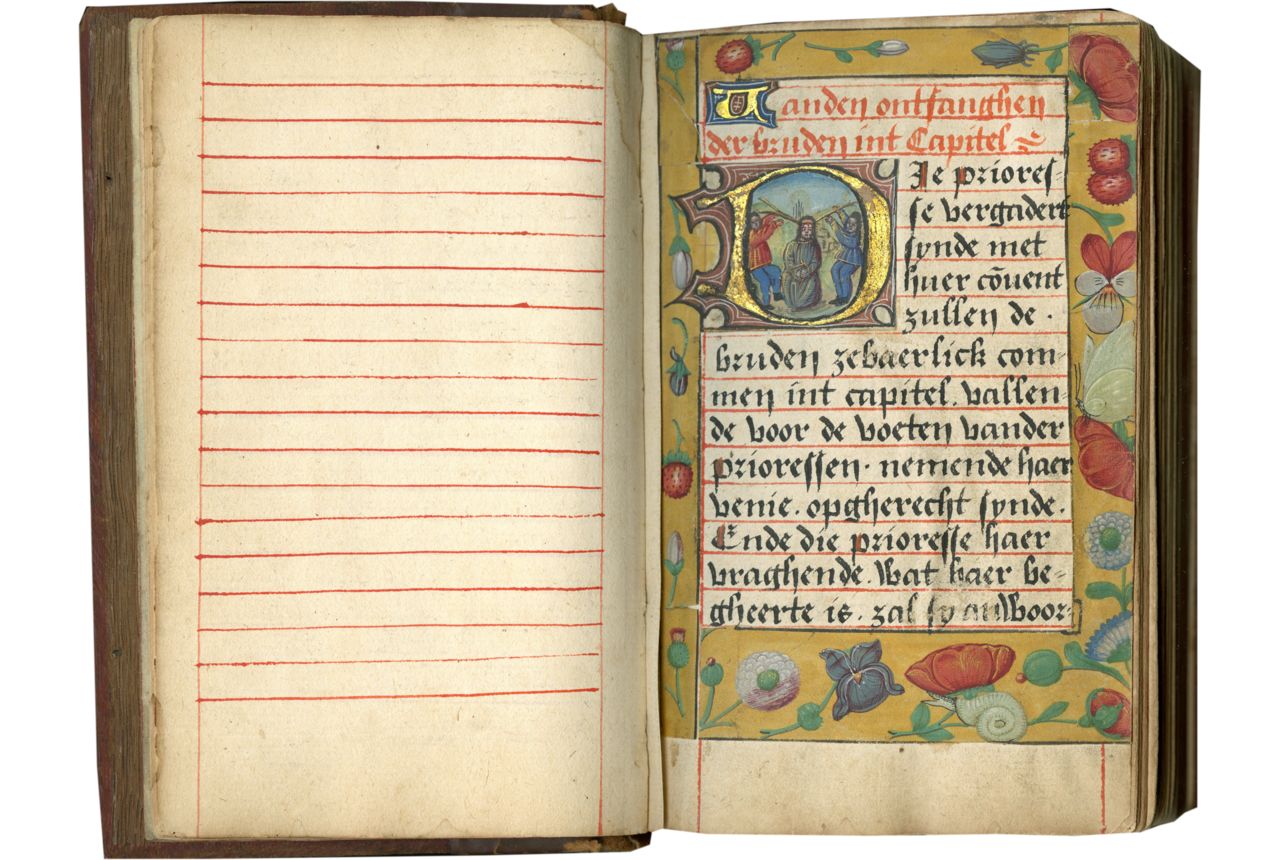 Vanden ontfanghen
der bruden int Capitel
Die priores-
se vergadert
synde met
huer cōuent
zullen de .
bruden zebaerlick com-
men int capitel. vallen-
de voor de voeten vander
prioressen. nemende haer
venie. opgherecht synde.
Ende die prioresse haer
vraghende. Wat haer be-
gheerte is. zal sy andWoor-